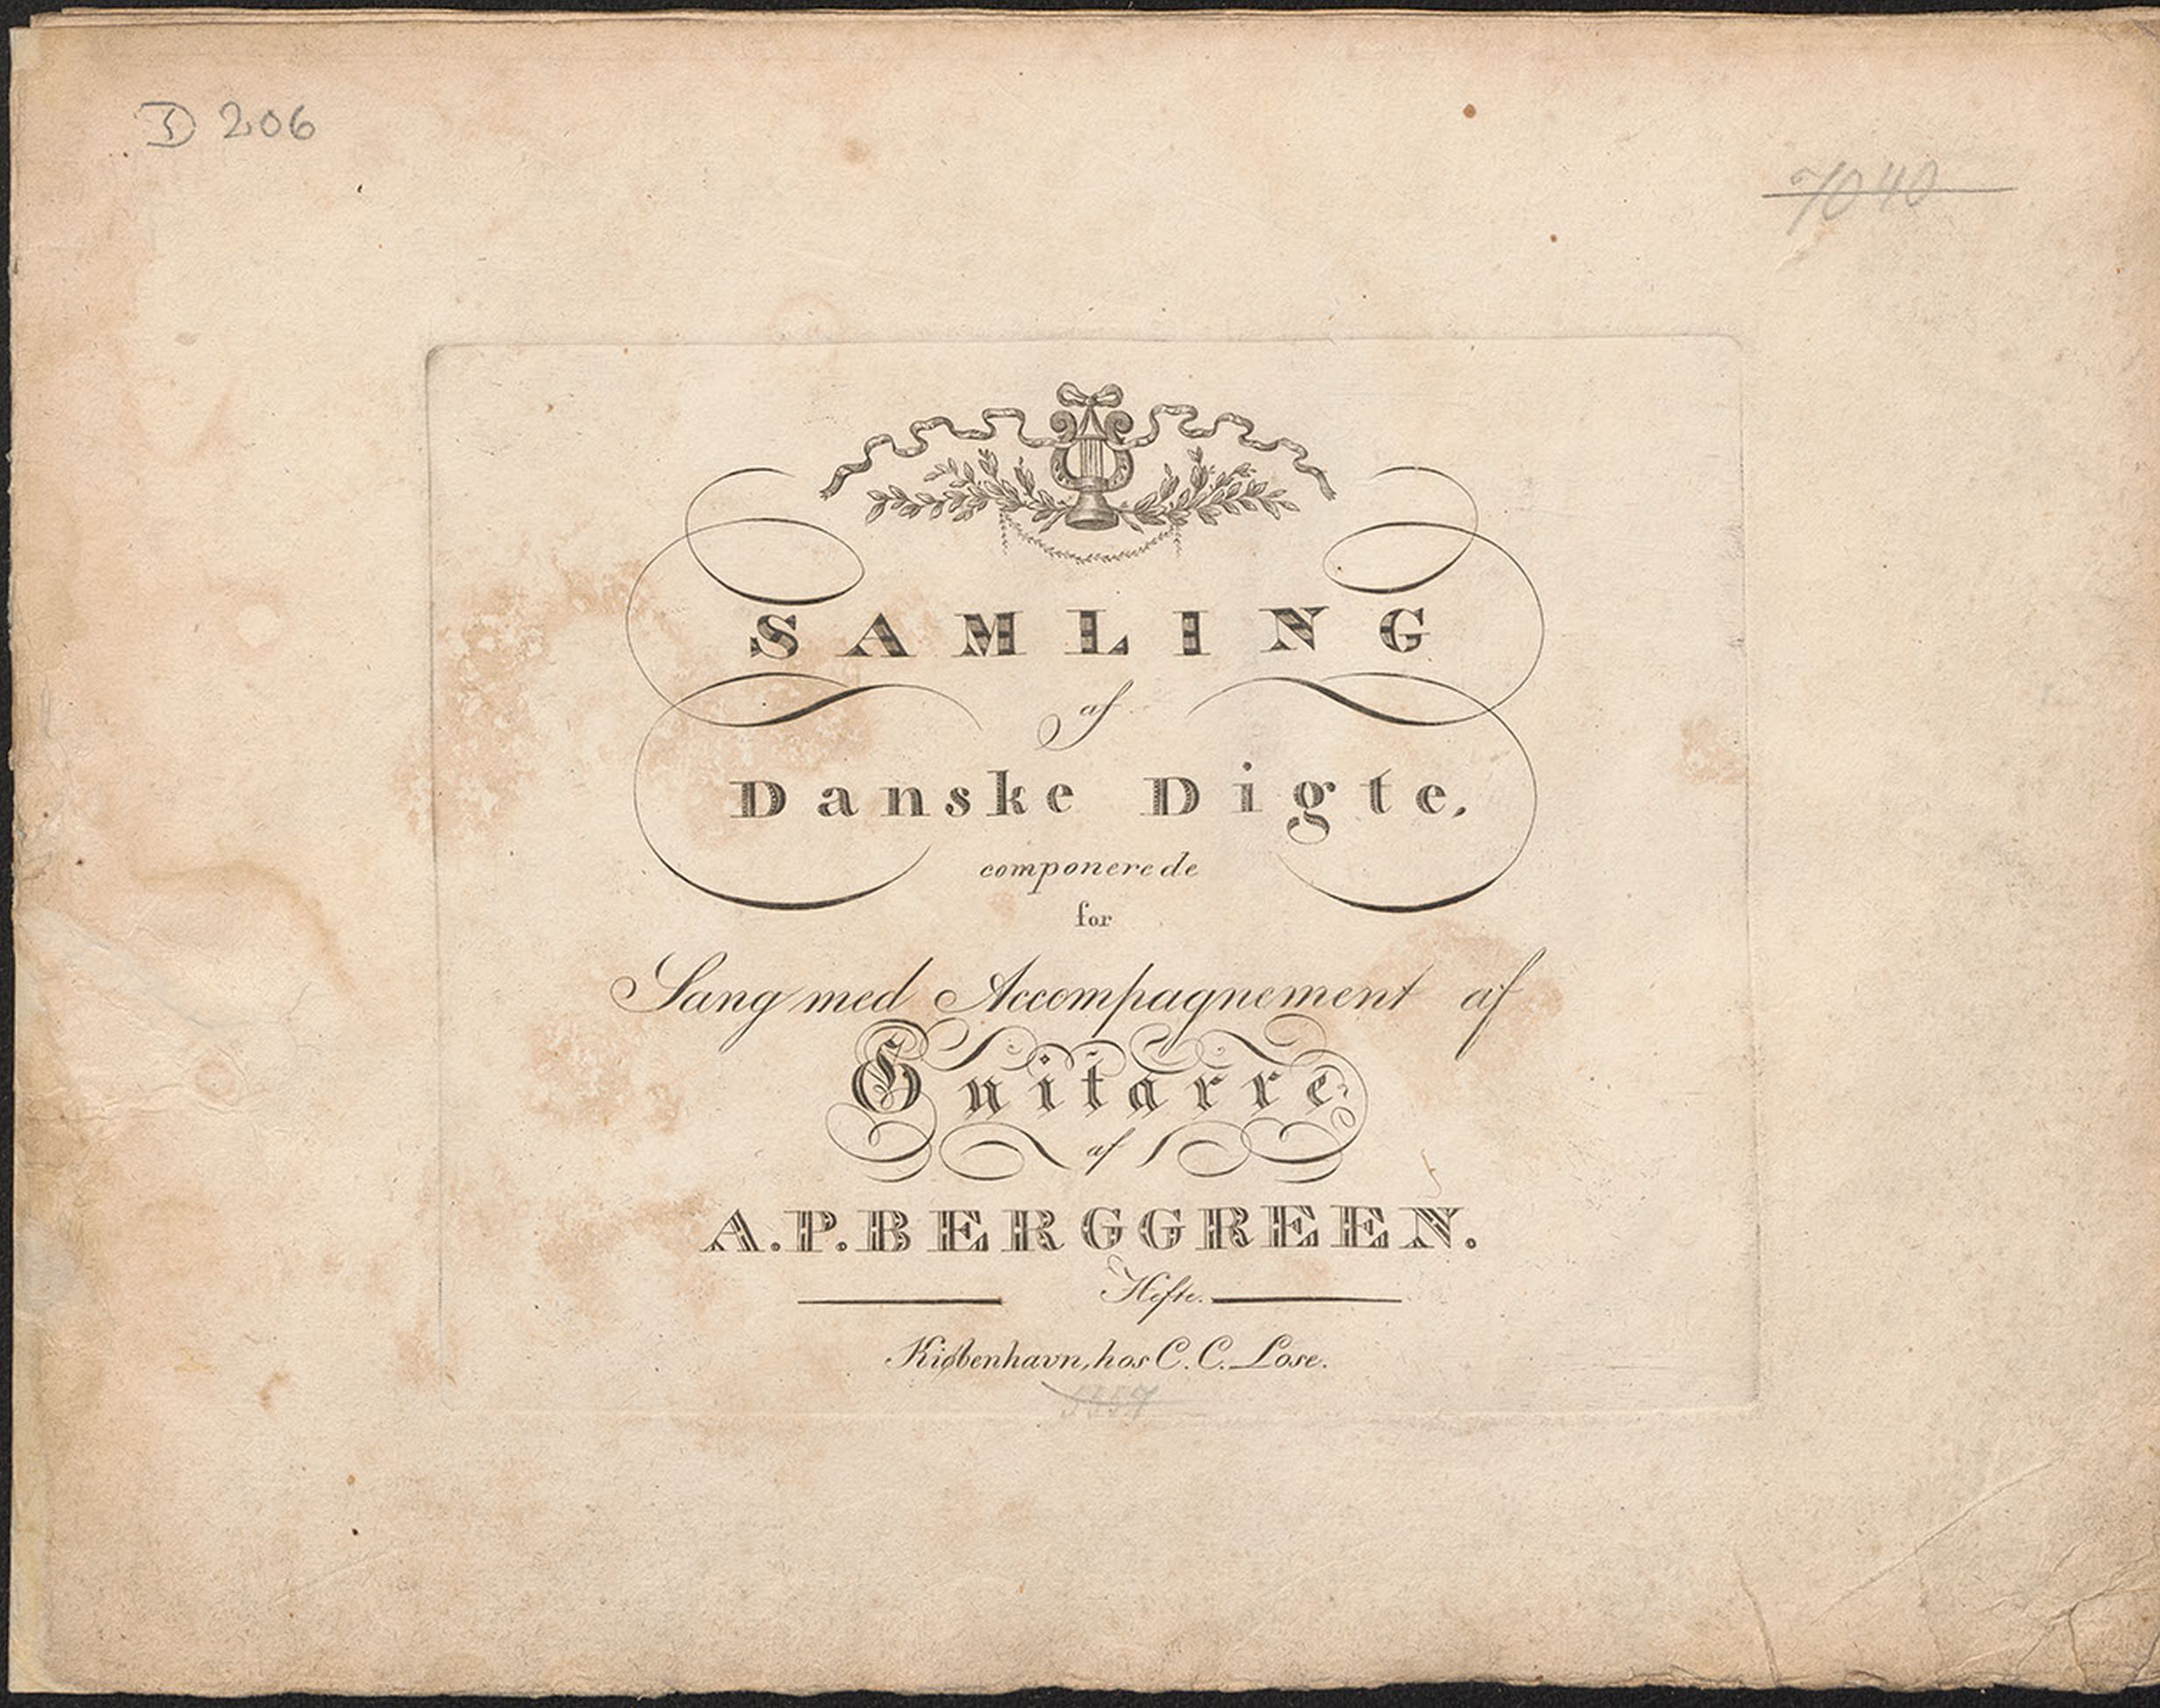 D 206
7040
SAMLING
af
Danske Digte,
componerede
for
Sang med Accompagnement af
Guitarre
af
A.P. BERGGREEN.
Hefte.
Kiøbenhavn, hos C. C. Lose.